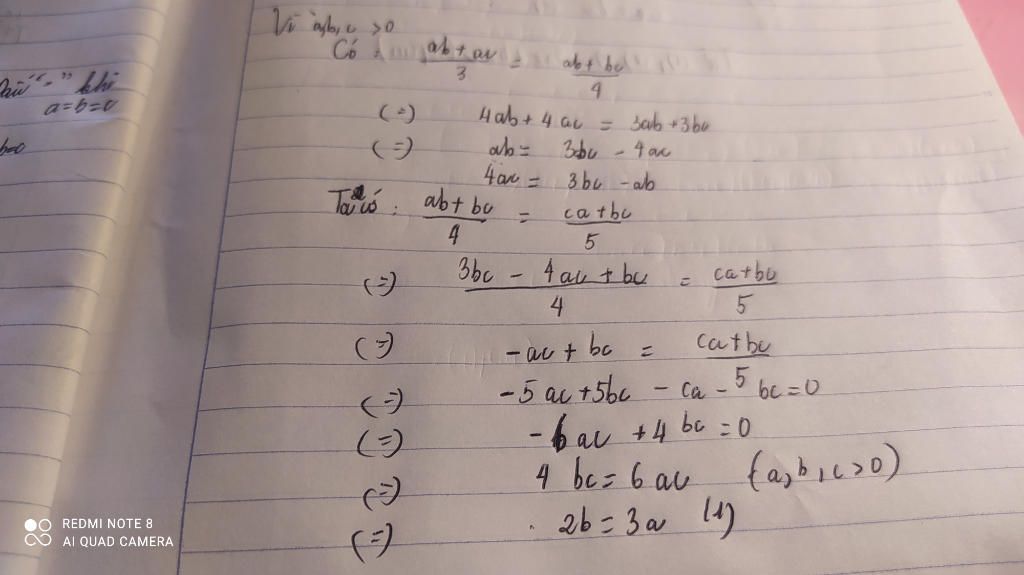 Dấu "=" khi
a=b=c
b=0
Vì a,b,c >0
Có : ab+ac/3 = ab+bc/4
(=) 4ab+4ac = 3ab+3bc
(=) ab = 3bc - 4ac
4ac = 3bc - ab
Ta có : ab+bc/4 = ca+bc/5
(=) 3bc - 4ac + bc/4 = ca+bc/5
(=) -ac + bc = ca+bc/5
(=) -5ac+5bc - ca - bc=0
(=) -6ac +4bc =0
(=) 4bc = 6ac (a,b,c>0)
(=) 2b = 3a (1)
REDMI NOTE 8
AI QUAD CAMERA